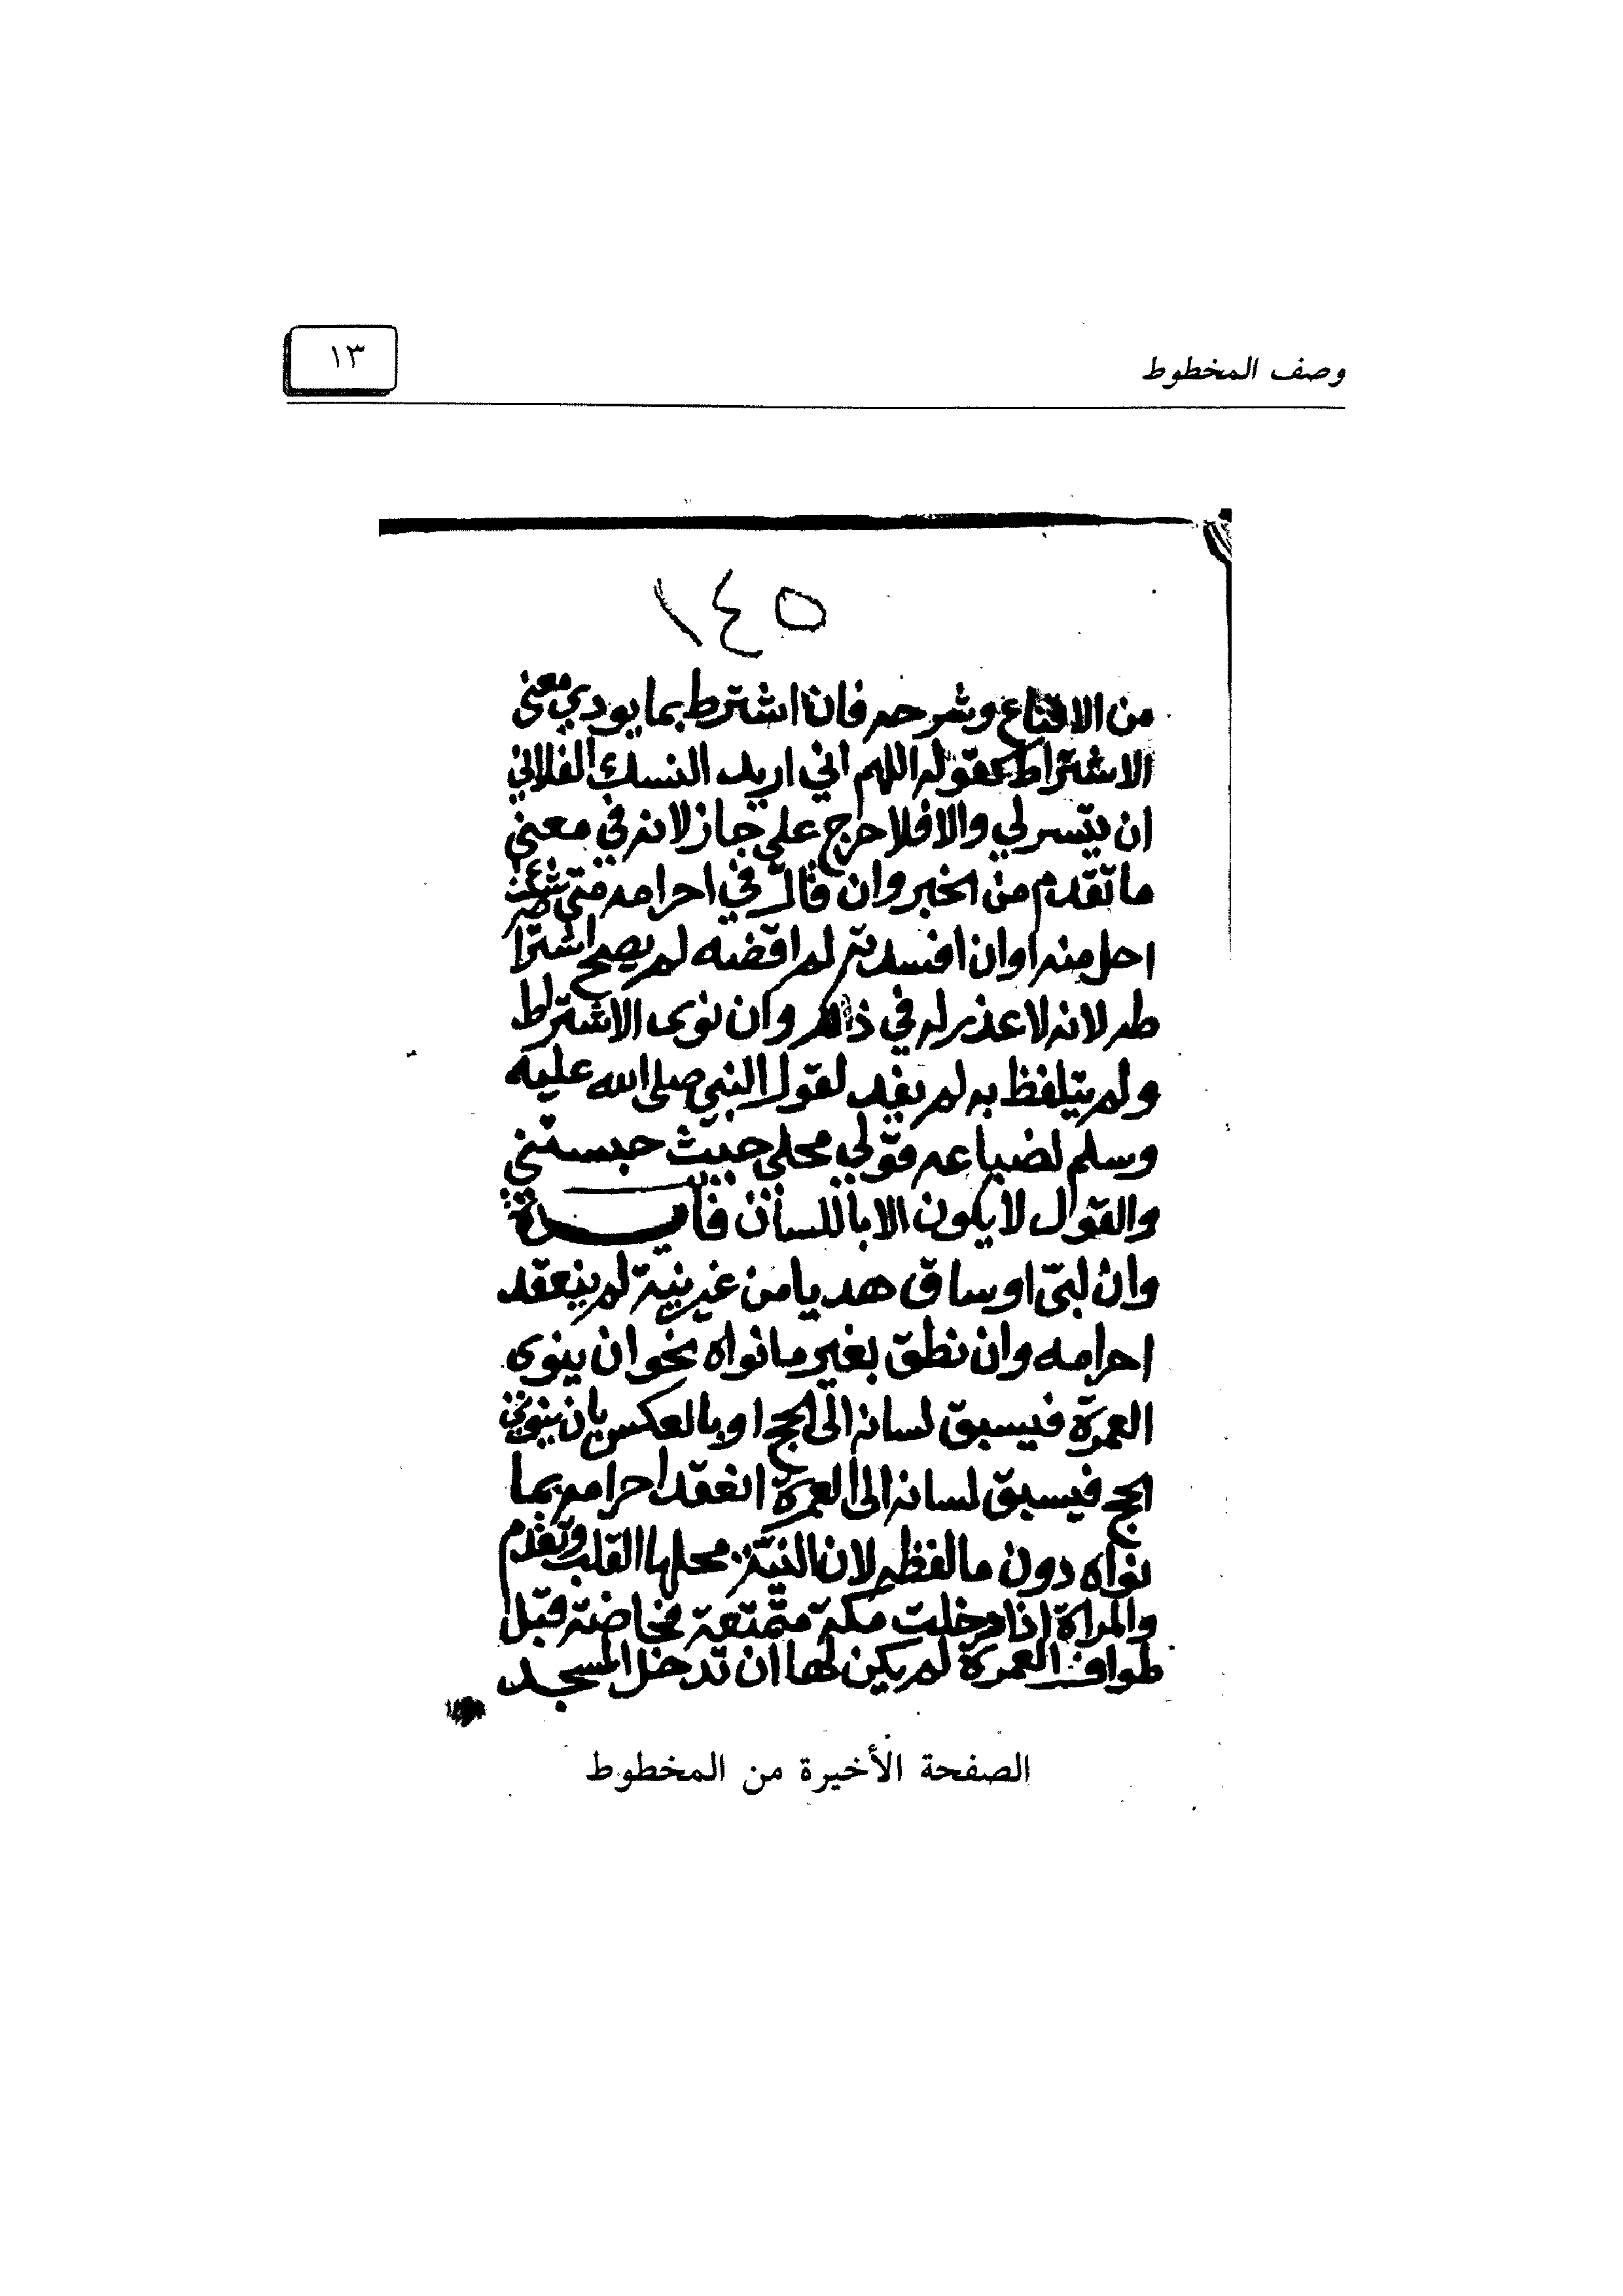 وصف المخطوط
١٣
١٤٥
من الاقناع وشرحه فان اشترط بما يودي معنى
الاشتراط كقوله اللهم اني اريد النسك الفلاني
ان يتسر لي والا فلا حرج علي جاز لانه في معنى
ما تقدم من الخبر وان قال في احرامه متى شئت
احل منه او ان افسدته لم اقضه لم يصح اشترا
طه لانه لا عذر له في ذالك وان نوى الاشتراط
ولم يتلفظ به لم يفد لقول النبي صلى الله عليه
وسلم لضباعه قولي محلي حيث حبستني
والقول لا يكون الا باللسان فايدة
وان لبى او ساق هديا من غير نية لم ينعقد
احرامه وان نطق بغير ما نواه نحو ان ينوى
العمرة فيسبق لسانه الى الحج او بالعكس بان ينوي
الحج فيسبق لسانه الى العمرة انعقد احرامه بما
نواه دون ما لفظه لان النية محلها القلب وتقدم
والمراة اذا دخلت مكة متمتعة فحاضت قبل
طواف العمرة لم يكن لها ان تدخل المسجد
الصفحة الأخيرة من المخطوط